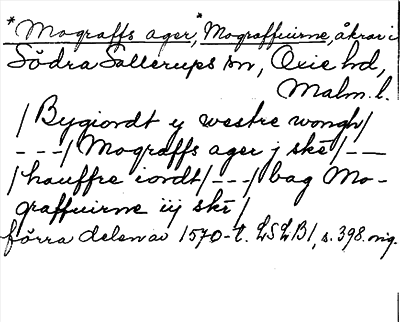 *Mograffs ager, *Mograffuirne, åkrar i
Södra Sallerups sn, Oxie hd,
Malm. l.
/ Bygiordt y westre wongh /
---/ Mograffs ager j ske /---
/ hauffre iordt /---/ bag Mo-
graffuirne iij ske /
förra delen av 1570-t. LSLB1, s. 398. orig.